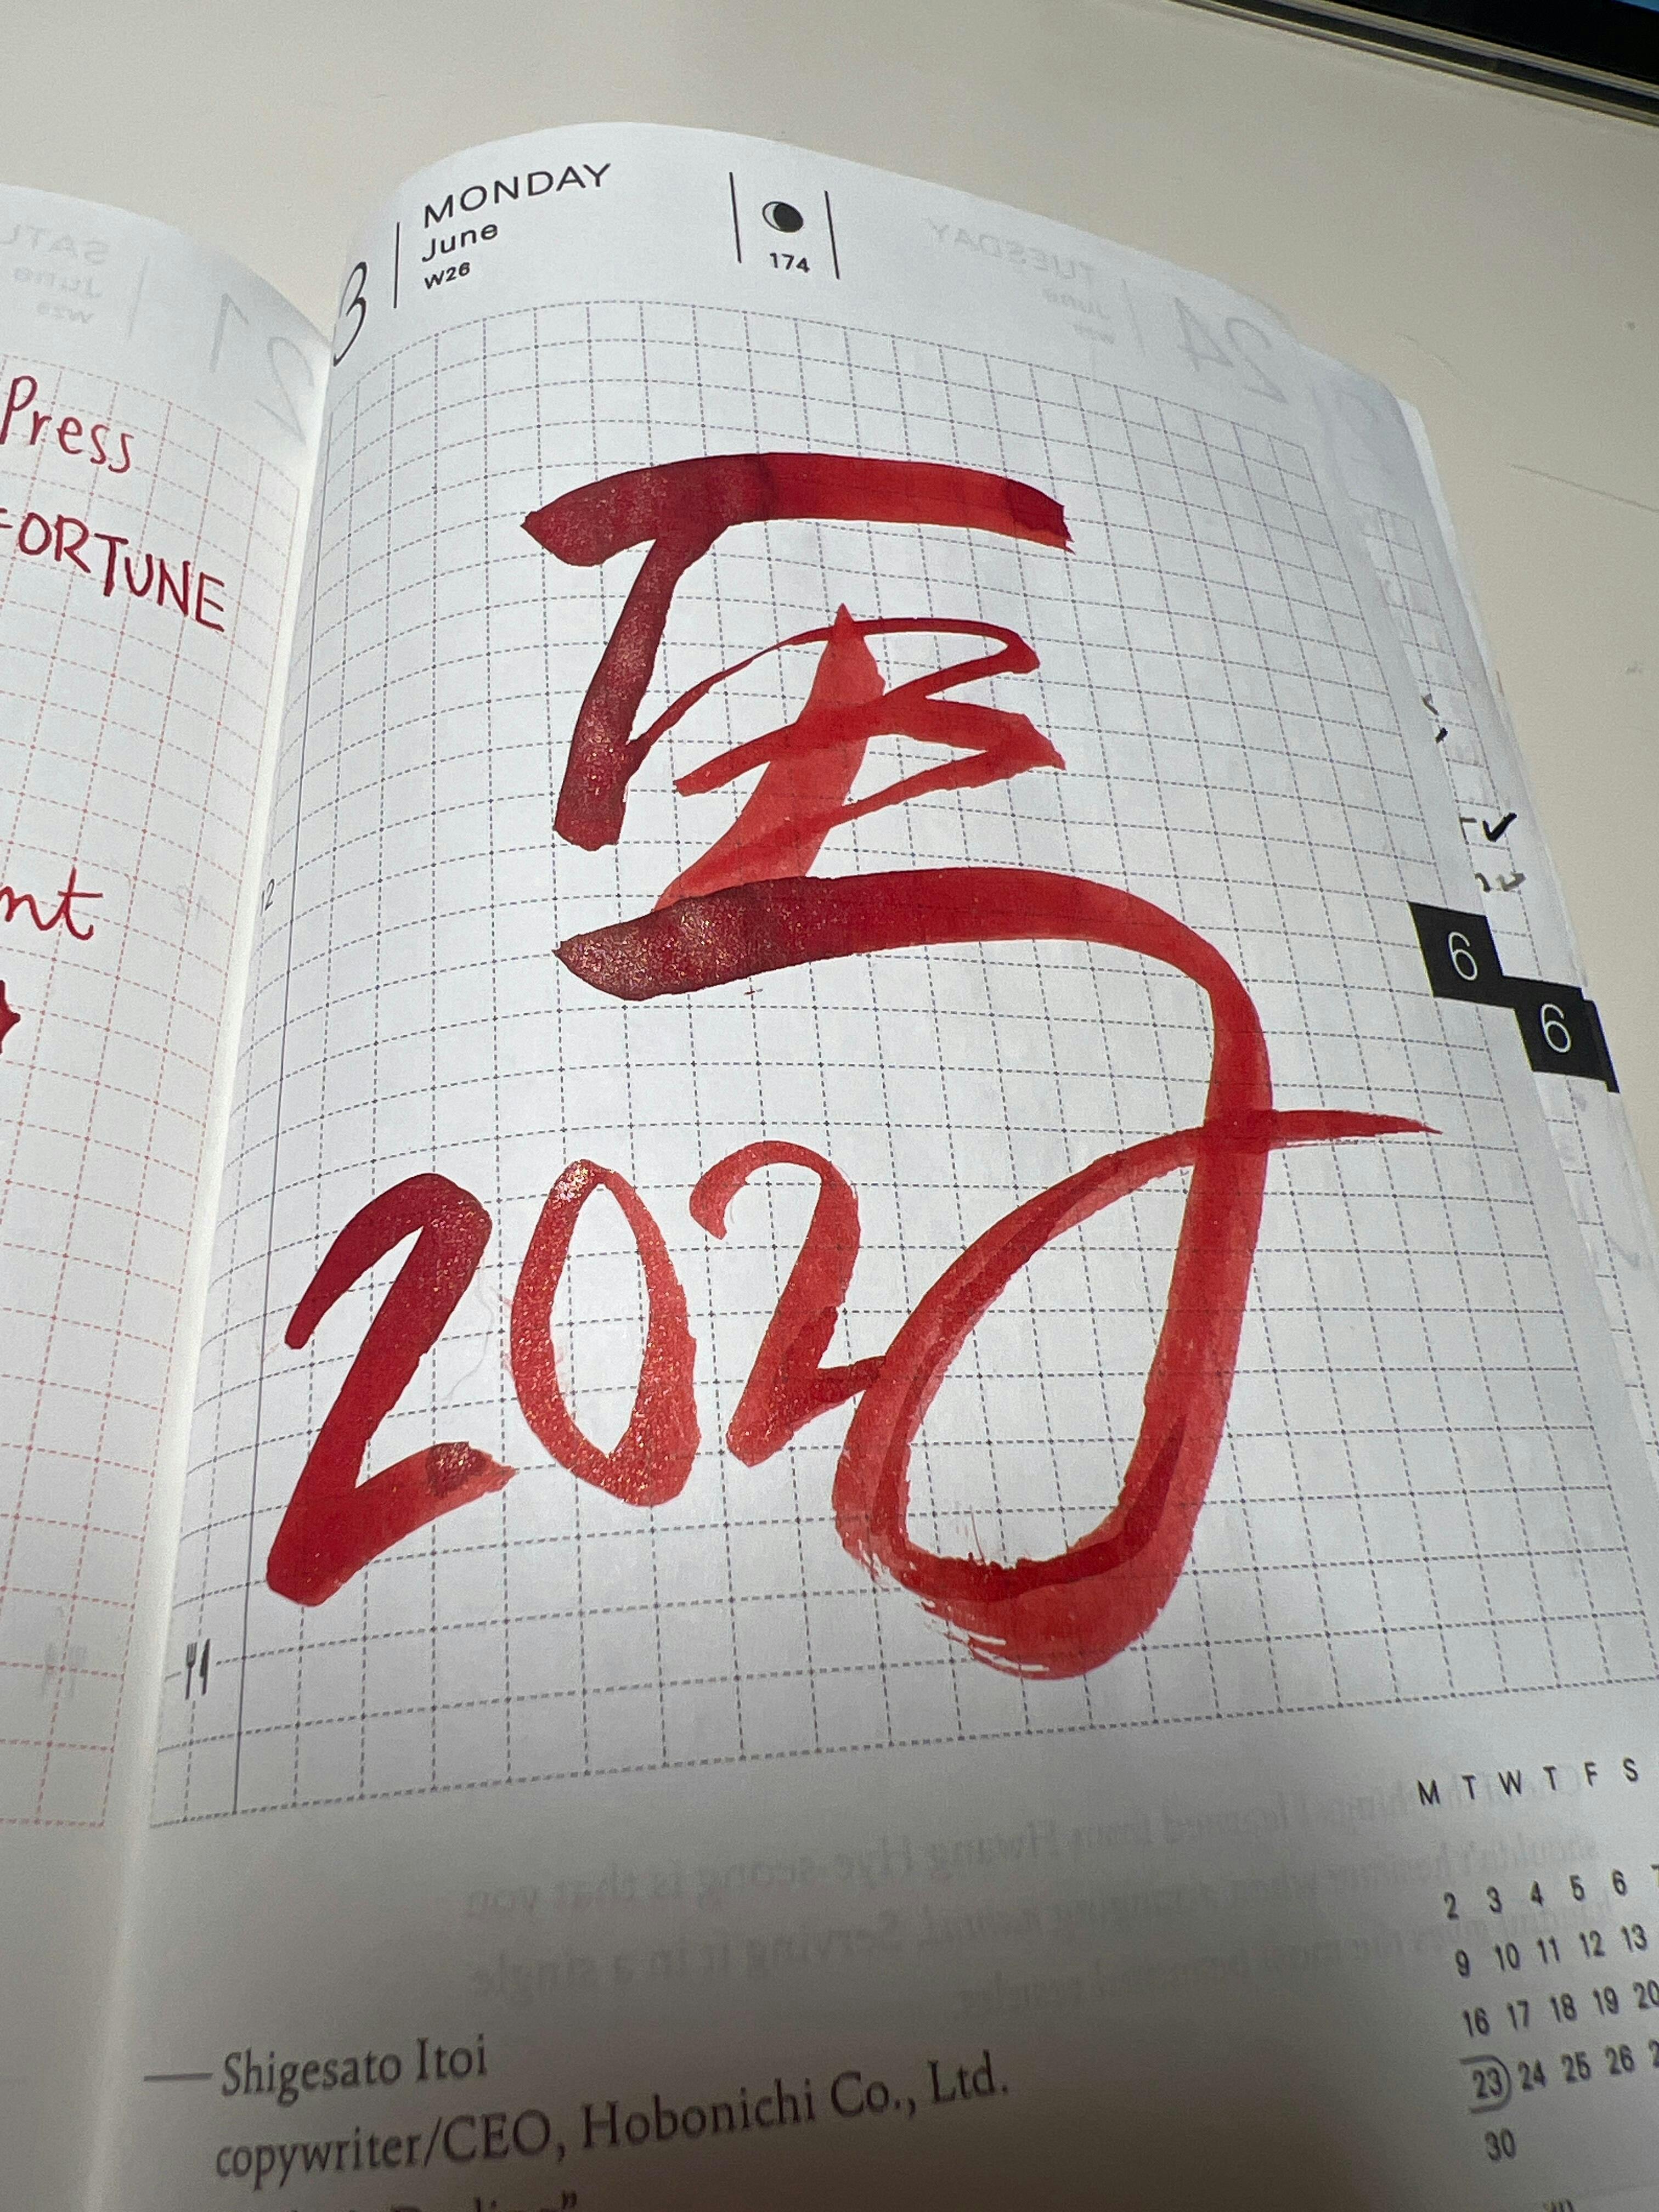 Press
FORTUNE
nt
MONDAY
June
W26
174
馬
2026
12
6
6
M T W T F S
2 3 4 5 6 7
9 10 11 12 13
16 17 18 19 20
23 24 25 26
30
— Shigesato Itoi
copywriter/CEO, Hobonichi Co., Ltd.